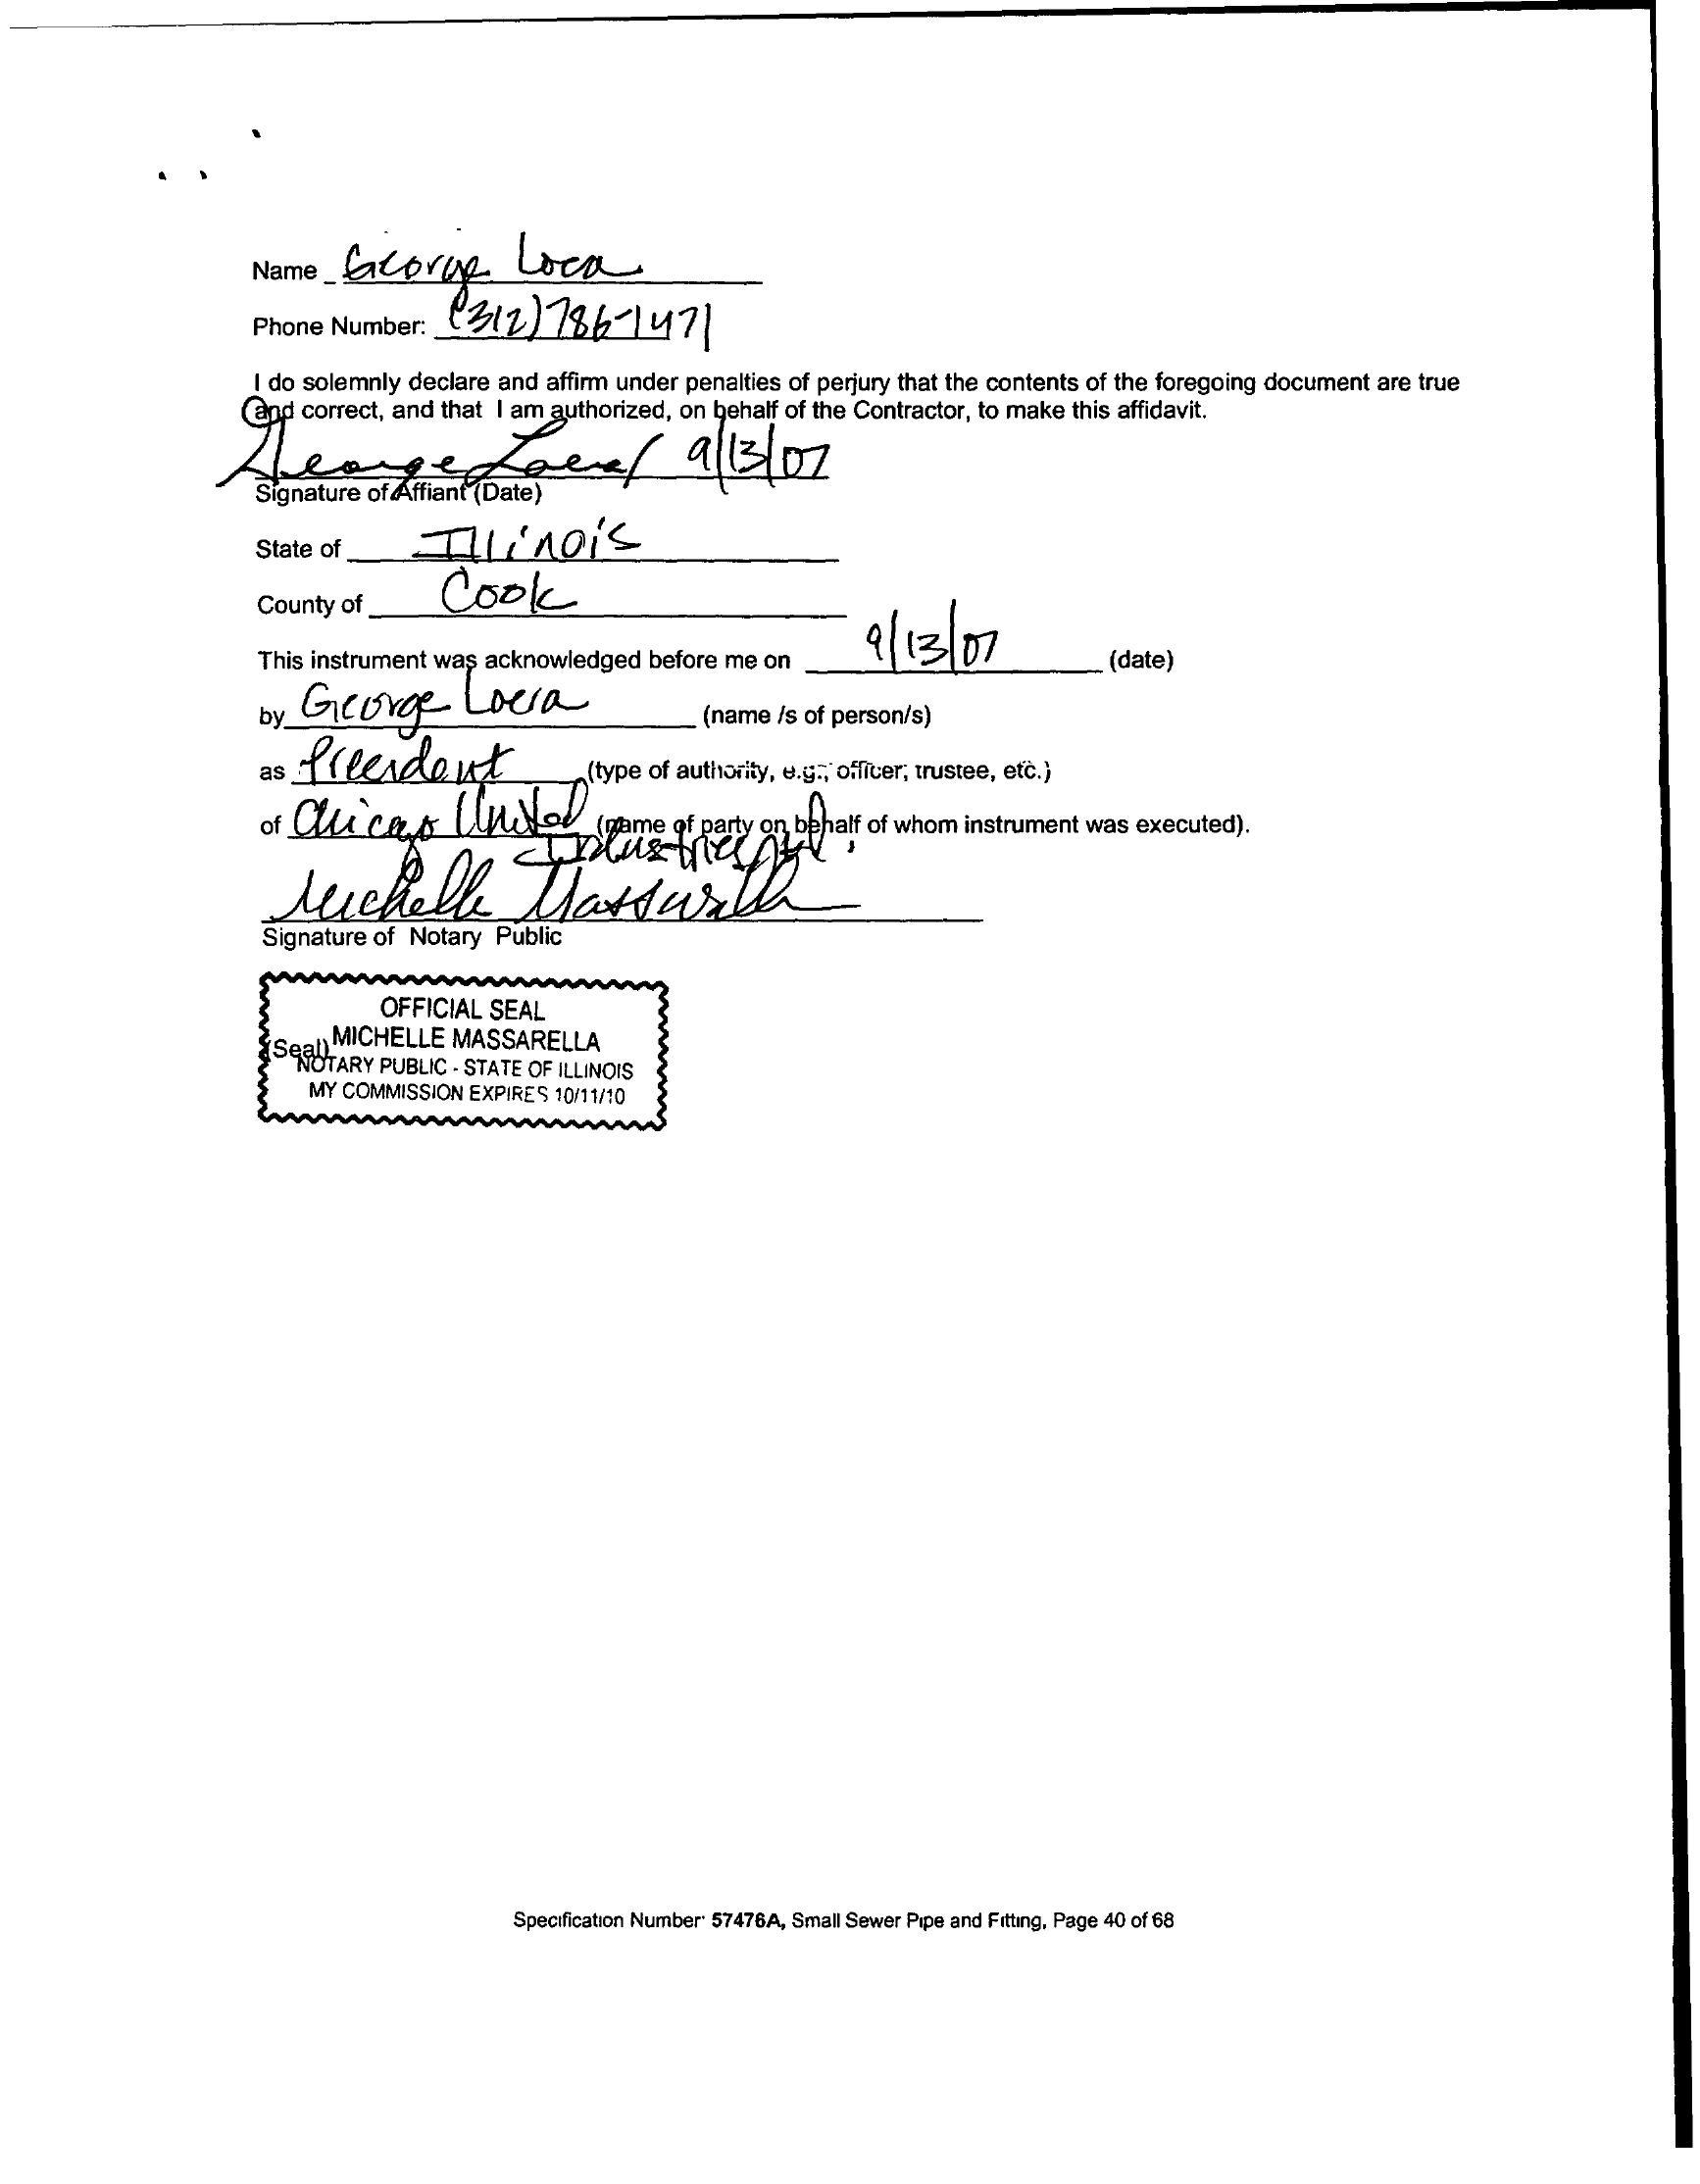 Name George Loera
Phone Number: (312) 786-1471
I do solemnly declare and affirm under penalties of perjury that the contents of the foregoing document are true
and correct, and that I am authorized, on behalf of the Contractor, to make this affidavit.
George Loera / 9/13/07
Signature of Affiant (Date)
State of Illinois
County of Cook
This instrument was acknowledged before me on 9/13/07 (date)
by George Loera (name /s of person/s)
as President (type of authority, e.g., officer, trustee, etc.)
of Chicago United (name of party on behalf of whom instrument was executed).
Industries,
Michelle Massarella
Signature of Notary Public
OFFICIAL SEAL
(Seal) MICHELLE MASSARELLA
NOTARY PUBLIC - STATE OF ILLINOIS
MY COMMISSION EXPIRES 10/11/10
Specification Number: 57476A, Small Sewer Pipe and Fitting, Page 40 of 68